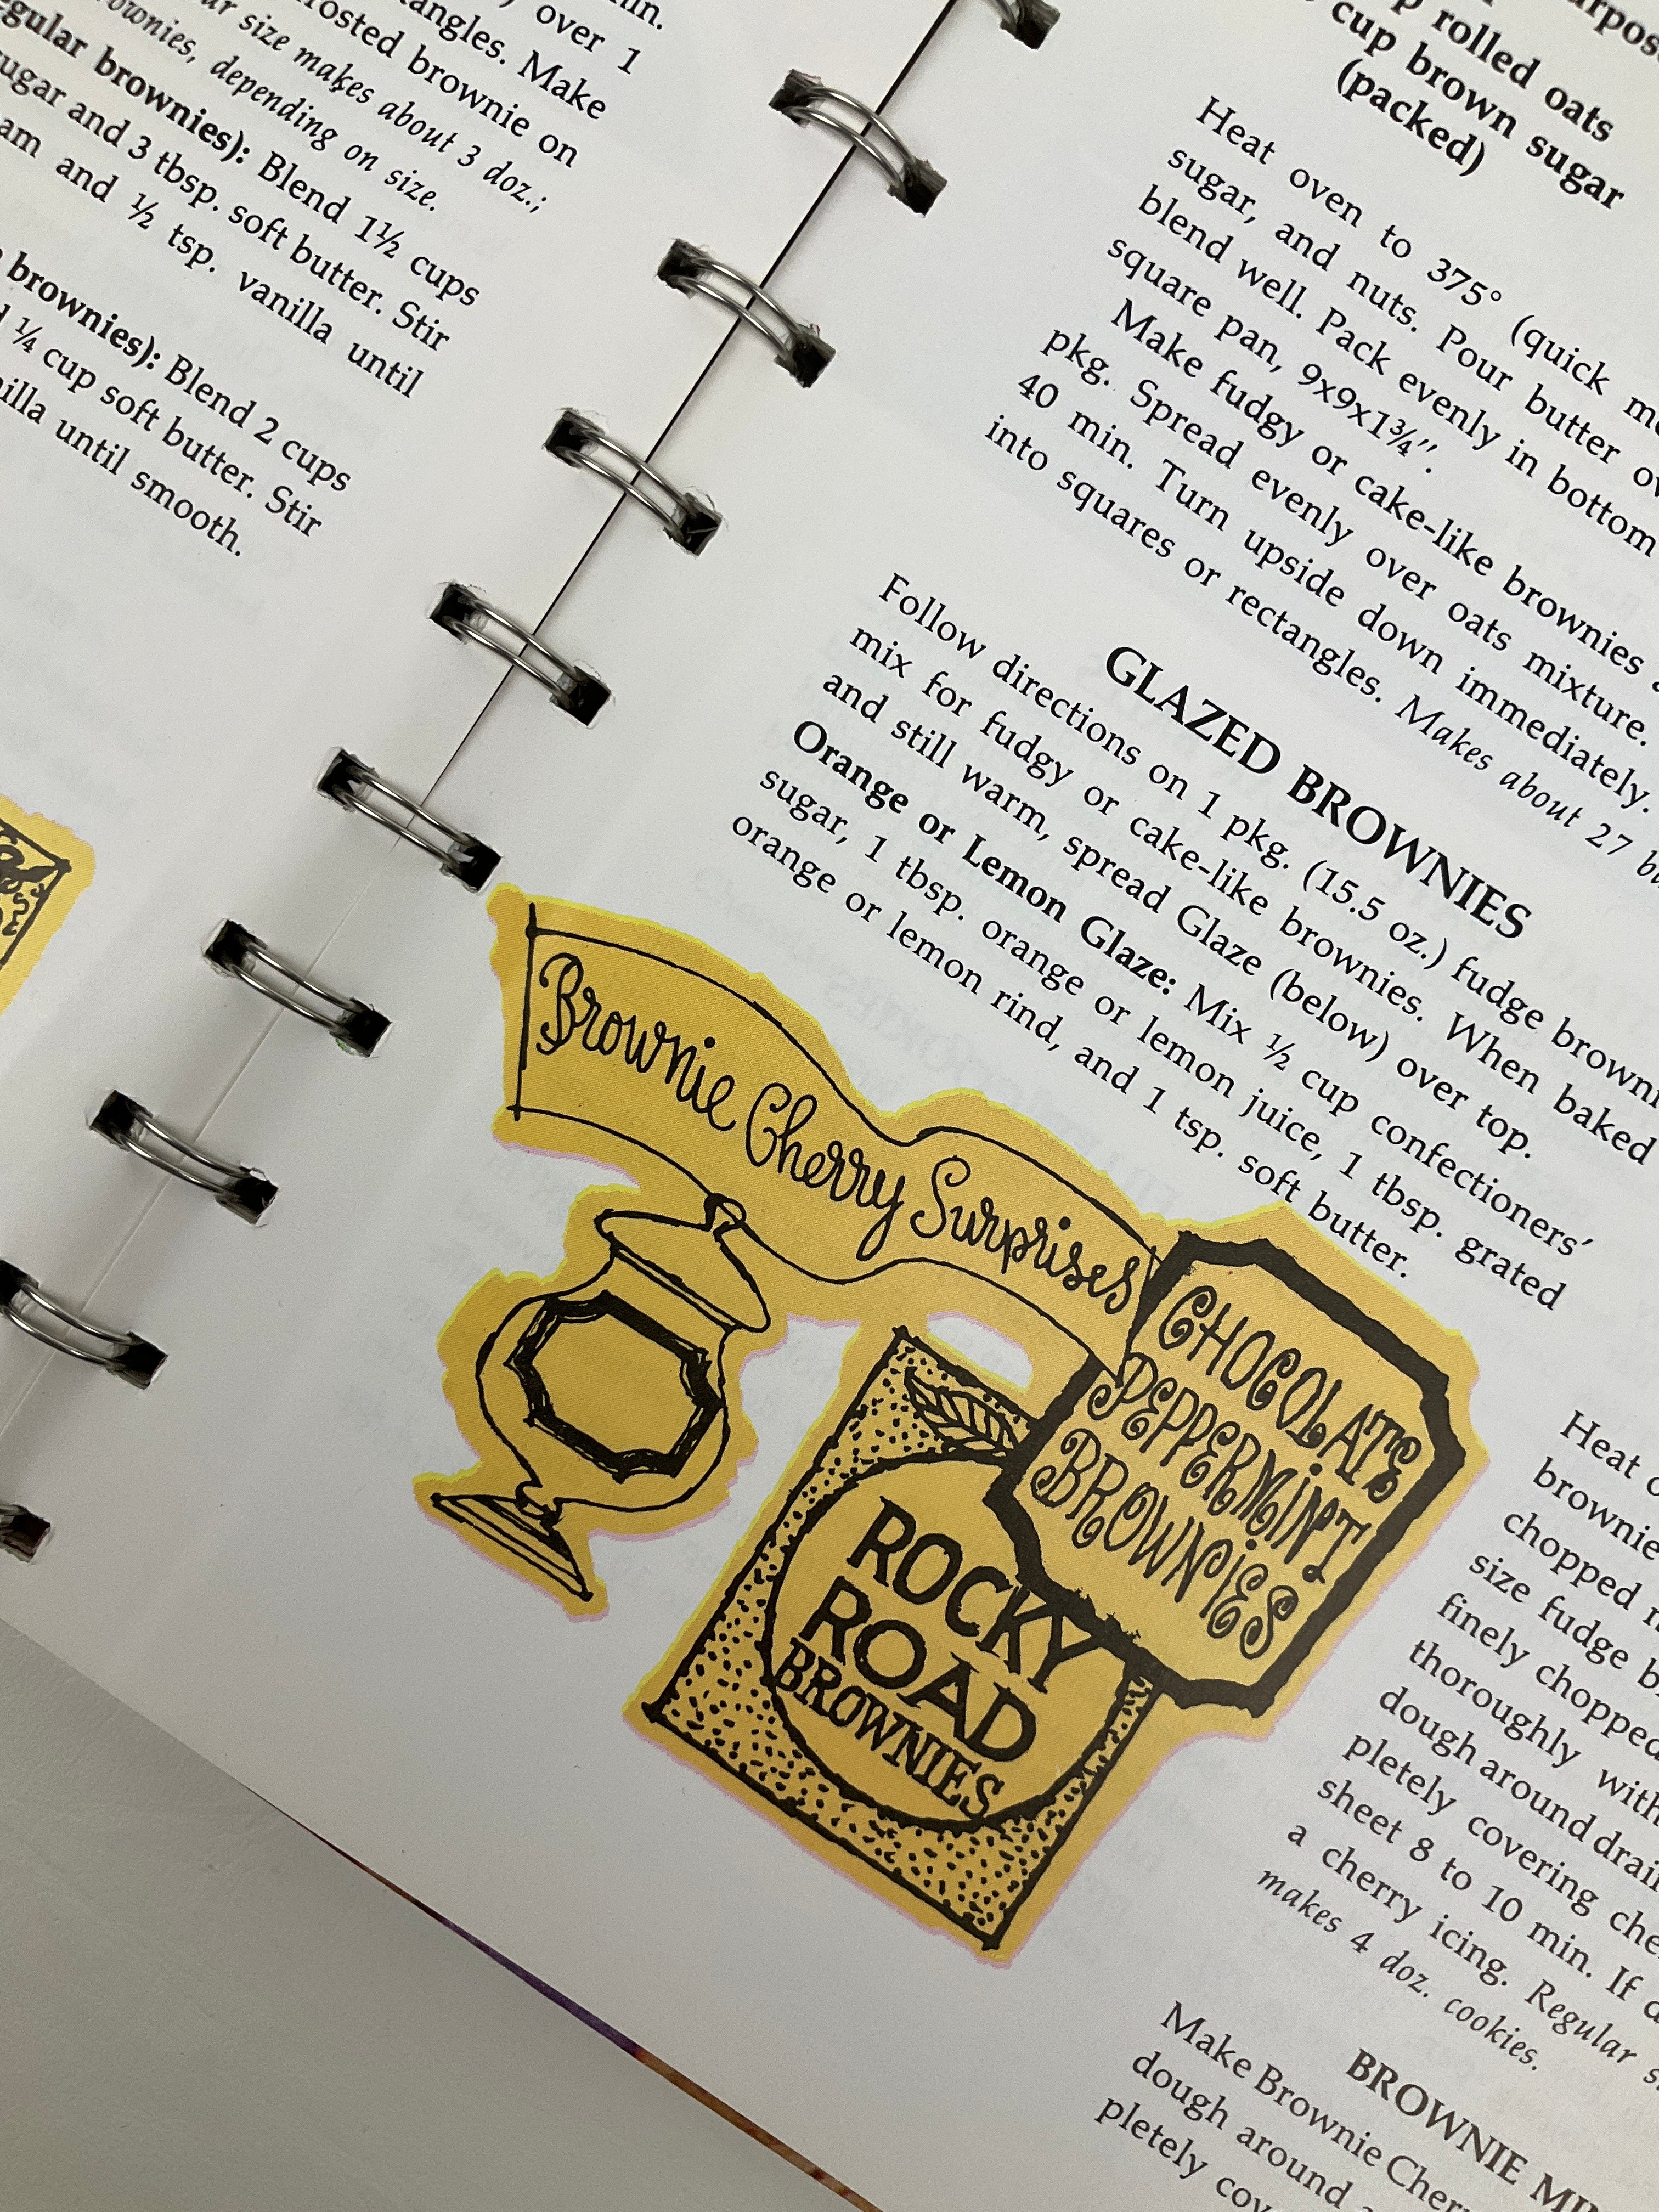 over 1
tangles. Make
frosted brownie on
size makes about 3 doz.;
brownies, depending on size.
regular brownies): Blend 1½ cups
sugar and 3 tbsp. soft butter. Stir
and ½ tsp. vanilla until
brownies): Blend 2 cups
¼ cup soft butter. Stir
until smooth.
rolled oats
cup brown sugar
(packed)
Heat oven to 375° (quick
sugar, and nuts. Pour butter
blend well. Pack evenly in bottom
square pan, 9x9x1¾".
Make fudgy or cake-like brownies
pkg. Spread evenly over oats mixture.
40 min. Turn upside down immediately.
into squares or rectangles. Makes about 27
GLAZED BROWNIES
Follow directions on 1 pkg. (15.5 oz.) fudge
mix for fudgy or cake-like brownies. When baked
and still warm, spread Glaze (below) over top.
Orange or Lemon Glaze: Mix ½ cup confectioners'
sugar, 1 tbsp. orange or lemon juice, 1 tbsp. grated
orange or lemon rind, and 1 tsp. soft butter.
Brownie Cherry Surprises
CHOCOLATE
PEPPERMINT
BROWNIES
ROCKY
ROAD
BROWNIES
Heat
brownie
chopped
size fudge
finely chopped
thoroughly with
dough around
pletely covering
sheet 8 to 10 min. If
a cherry icing. Regular
makes 4 doz. cookies.
BROWNIE
Make Brownie
dough around
pletely